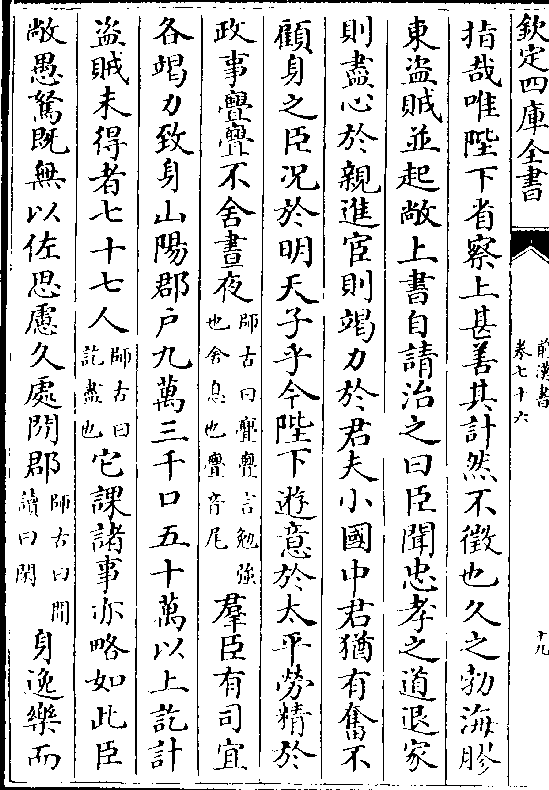 欽定四庫全書
前漢書
卷七十六
十九
指哉唯陛下省察上甚善其計然不徵也久之勃海膠
東盜賊並起敞上書自請治之曰臣聞忠孝之道退家
則盡心於親進宦則竭力於君夫小國中君猶有奮不
顧身之臣况於明天子乎今陛下遊意於太平勞精於
政事亹亹不舍晝夜師古曰亹亹言勉強也舍息也亹音尾羣臣有司宜
各竭力致身山陽郡户九萬三千口五十萬以上訖計
盜賊未得者七十七人師古曰訖盡也它課諸事亦略如此臣
敞愚駑既無以佐思慮久處閒郡師古曰閒讀曰閑身逸樂而